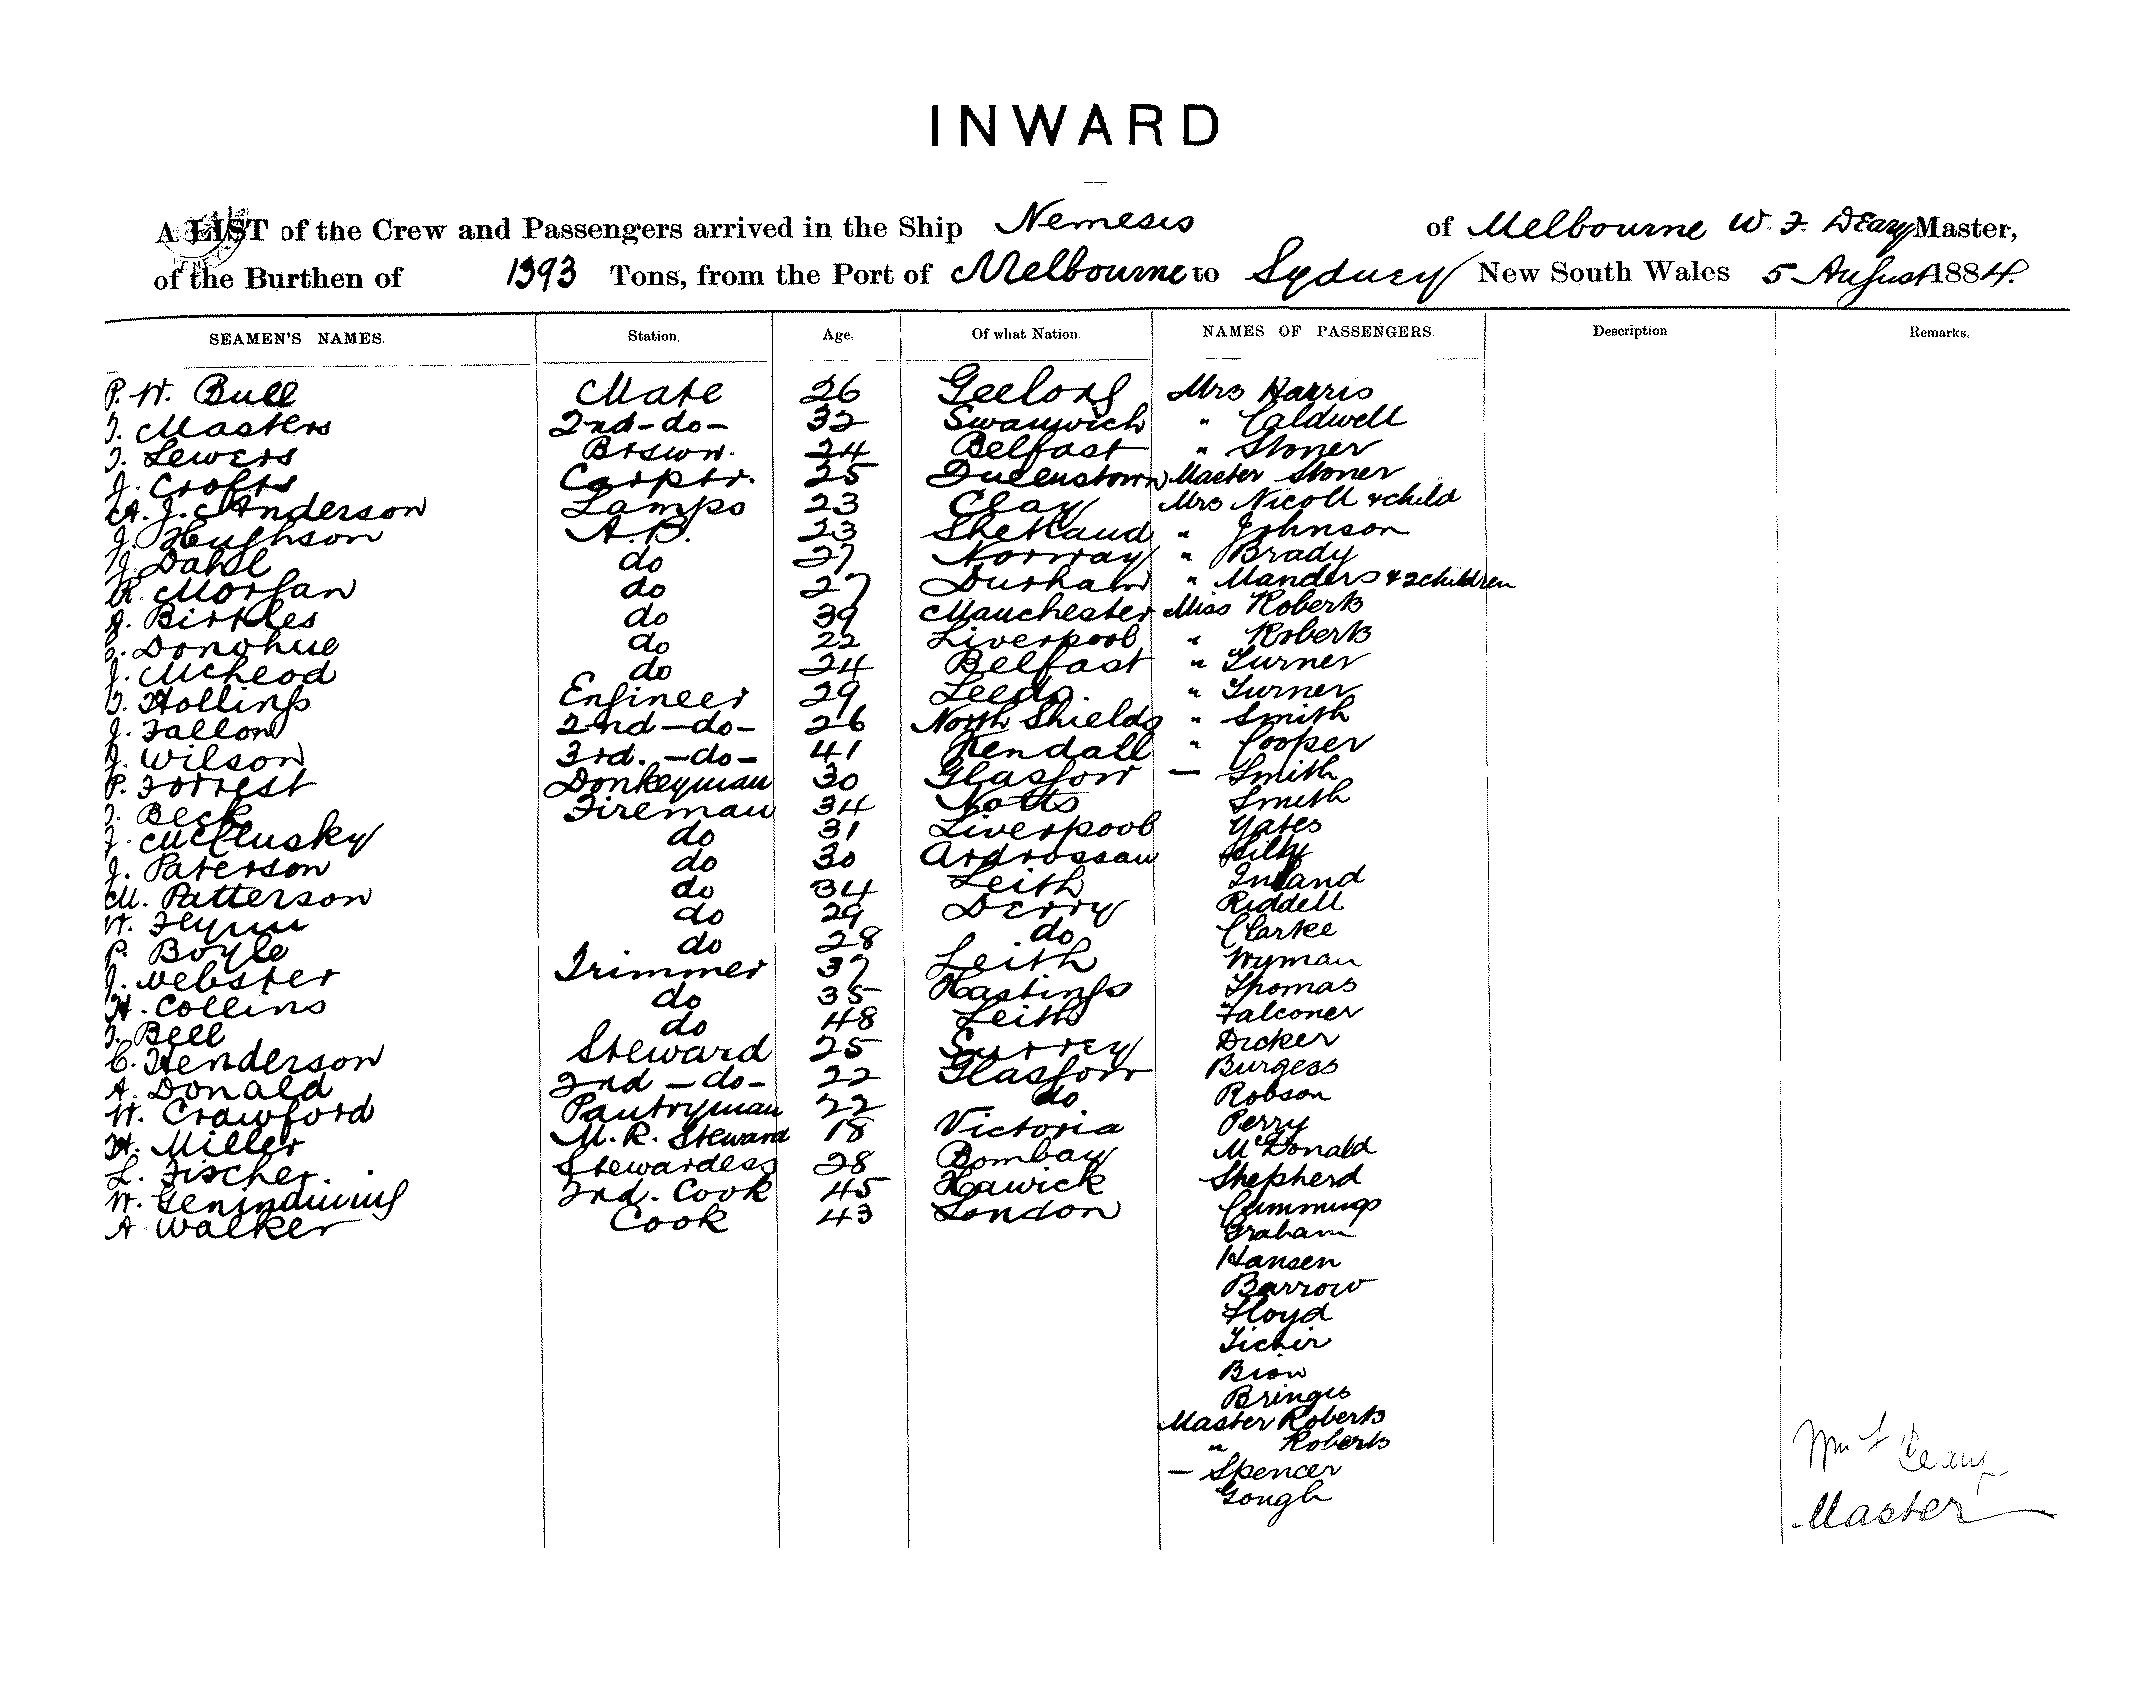 INWARD
A LIST of the Crew and Passengers arrived in the Ship Nemesis of Melbourne W. F. Deary Master,
of the Burthen of 1393 Tons, from the Port of Melbourne to Sydney New South Wales 5 August 1884.
SEAMEN'S NAMES. Station. Age. Of what Nation. NAMES OF PASSENGERS. Description Remarks.
P. W. Bull Mate 26 Geelong Mrs Harris
T. Masters 2nd-do- 32 Swanwich " Caldwell
T. Lewers Bosun. 24 Belfast " Stoner
J. Crofts Carptr. 25 Queenstown Master Stoner
A. J. Anderson Lamps 23 Clay Mrs Nicoll & child
J. Hughson A.B. 23 Shetland " Johnson
J. Dahl do 27 Norway " Brady
R. Morgan do 27 Durham " Manders & 2 children
J. Birkles do 39 Manchester Miss Roberts
Donohue do 22 Liverpool " Roberts
J. McLeod do 24 Belfast " Turner
Hollings Engineer 29 Leeds. " Turner
J. Fallon 2nd-do- 26 North Shields " Smith
J. Wilson 3rd.-do- 41 Kendall " Cooper
P. Forrest Donkeyman 30 Glasgow — Smith
Beck Fireman 34 Notts Smith
J. McClusky do 31 Liverpool Yates
J. Paterson do 30 Ardrossan
M. Patterson do 34 Leith
W. Flynn do 29 Derry Riddell
P. Boyle do 28 do Clarke
J. Webster Trimmer 37 Leith Wyman
H. Collins do 35 Hastings Thomas
T. Bell do 48 Leith Falconer
C. Henderson Steward 25 Surrey Dicker
A. Donald 2nd-do- 22 Glasgow Burgess
W. Crawford Pantryman 22 do Robson
H. Miller M.R. Steward 18 Victoria Perry
L. Fischer. Stewardess 28 Bombay McDonald
W. 2nd. Cook 45 Hawick Shepherd
A Walker Cook 43 London Cummings
Graham
Hansen
Barrow
Lloyd
Bion
Bringes
Master Roberts
" Roberts
— Spencer
Gough
Wm F Deary
Master